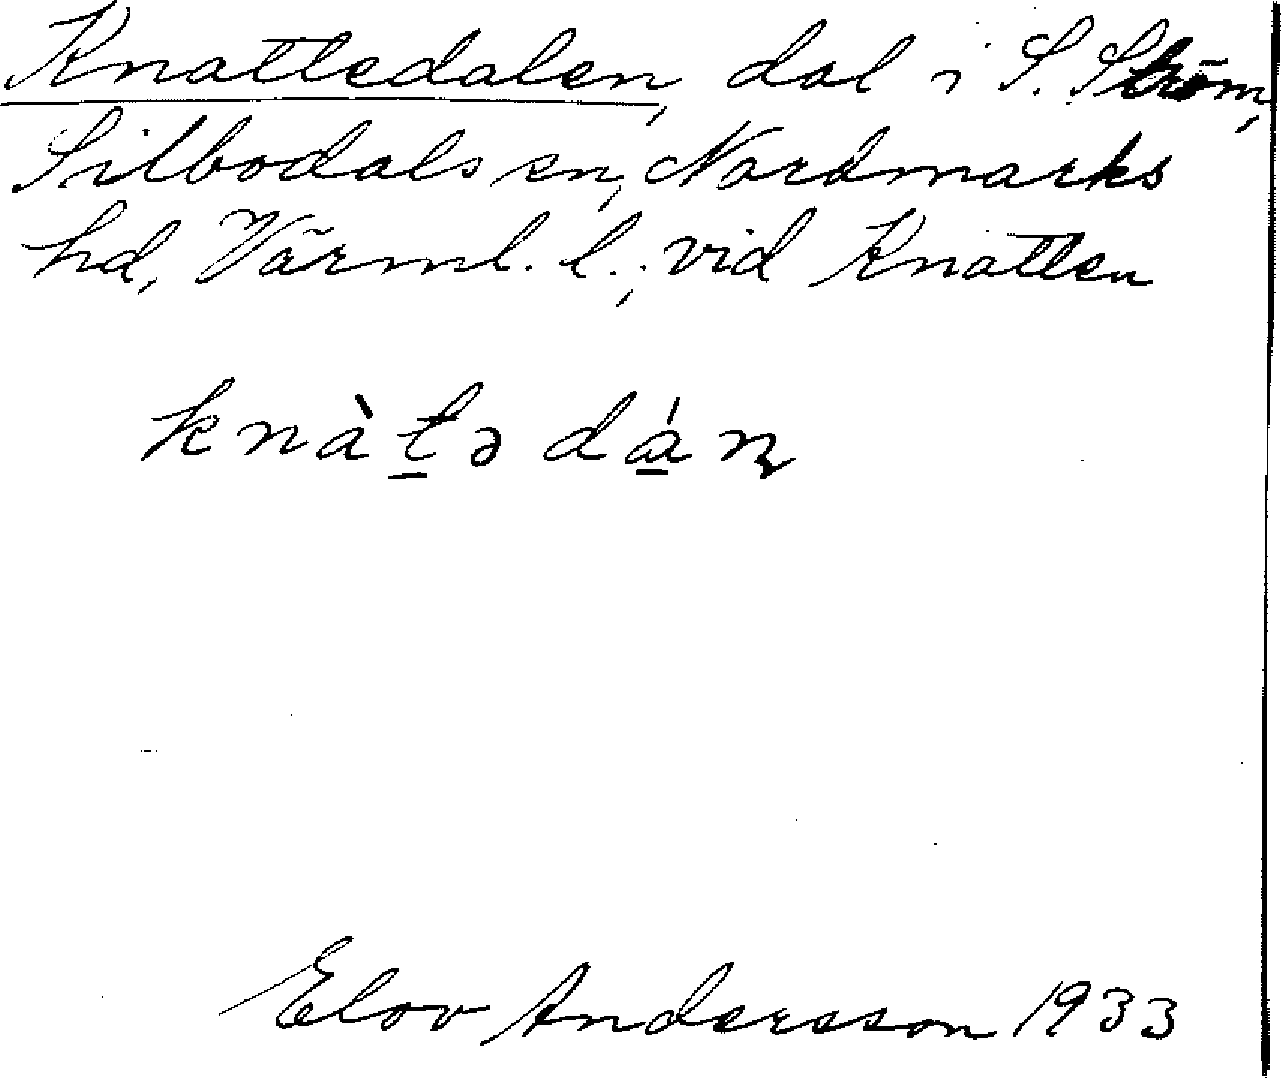 Knattedalen, dal i S. Ström,
Silbodals sn, Nordmarks
hd, Värml. l.; vid Knatten
knàt̲ə dá̲ɳ
Elov Andersson 1933